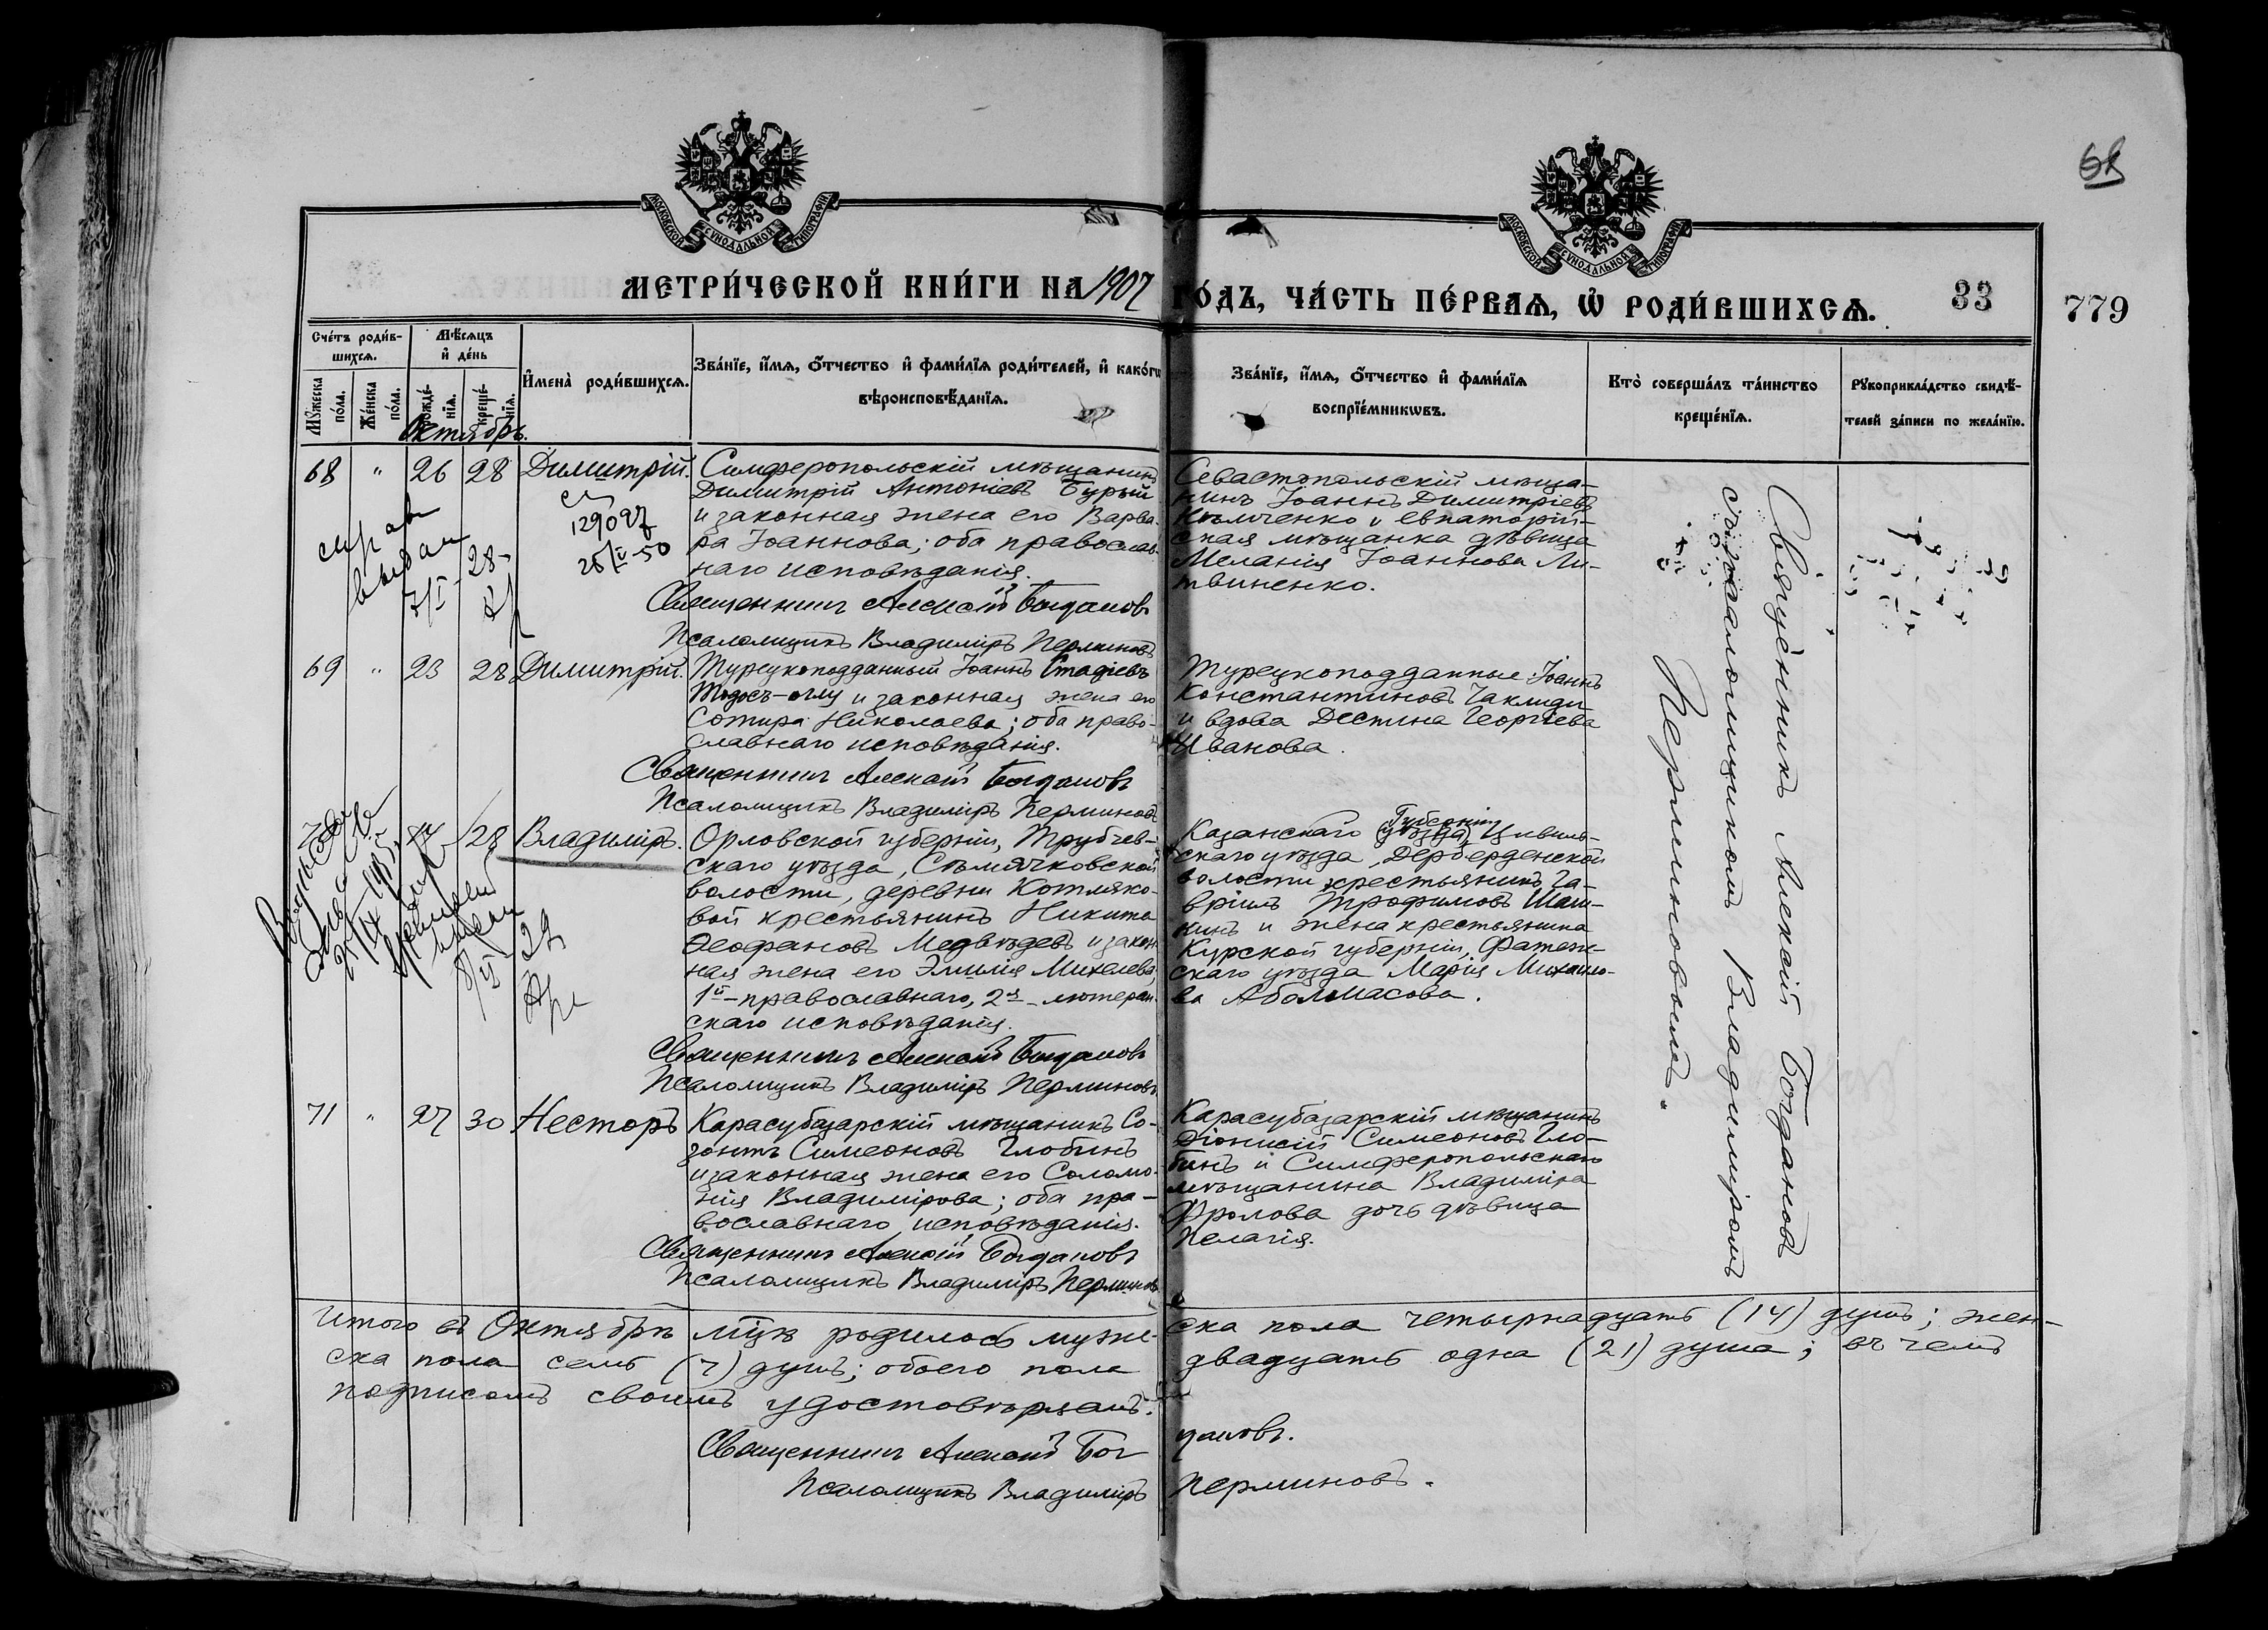 68
МОСКОВСКОЙ СѴНОДАЛЬНОЙ ТИПОГРАФІИ
МОСКОВСКОЙ СѴНОДАЛЬНОЙ ТИПОГРАФІИ
МЕТРИ́ЧЕСКОЙ КНИ́ГИ НА 1907 ГО́ДЪ, ЧА́СТЬ ПЕ́РВАѦ, Ѡ҆ РОДИ́ВШИХСѦ.
33
779
Сче́тъ роди́в-
шихсѧ.
Мѣ́сѧцъ
и҆ де́нь
Мꙋ́жеска
по́ла.
Же́нска
по́ла.
рожде́-
нїѧ.
креще́-
нїѧ.
И҆мена̀ роди́вшихсѧ.
Зва́нїе, и҆́мѧ, ѻ҆́тчество и҆ фами́лїѧ роди́телей, и҆ како́гѡ
вѣроисповѣ́данїѧ.
Зва́нїе, и҆́мѧ, ѻ҆́тчество и҆ фами́лїѧ
воспрїе́мникѡвъ.
Кто̀ соверша́лъ та́инство
креще́нїѧ.
Рꙋкоприкла́дство свидѣ́-
телей за́писи по жела́нїю.
Октябрь.
68 " 26 28 Димитрій.
129097
26/IV-50
справ
выдан
7/I - 28-
Симферопольскій мѣщанинъ
Димитрій Антоніевъ Бурый
и законная жена его Варва-
ра Іоаннова; оба православ-
наго исповѣданія.
Священникъ Алексій Богдановъ
Псаломщикъ Владиміръ Перминовъ
Севастопольскій мѣща-
нинъ Іоаннъ Димитріевъ
и евпаторій-
ская мѣщанка дѣвица
Меланія Іоаннова Ли-
твиненко.
69 " 23 28 Димитрій.
Турецкоподданный Іоаннъ Стадіевъ
Тодосъ-оглу и законная жена его
Сотира Николаева; оба право-
славнаго исповѣданія.
Священникъ Алексій Богдановъ
Псаломщикъ Владиміръ Перминовъ
Турецкоподданные: Іоаннъ
Константиновъ Чаклиди
и вдова Деспина Георгіева
Иванова.
28 Владиміръ.
29
Орловской губерніи, Трубчев-
скаго уѣзда, Сѣмячковской
волости, деревни Котляко-
вой крестьянинъ Никита
Ѳеофановъ Медвѣдевъ и закон-
ная жена его Эмилія Михелева,
1й - православнаго, 2я - лютеран-
скаго исповѣданія.
Священникъ Алексій Богдановъ
Псаломщикъ Владиміръ Перминовъ.
Губерніи
Казанскаго (уѣзда) Цивиль-
скаго уѣзда,
волости крестьянинъ Га-
вріилъ Трофимовъ Шаш-
кинъ и жена крестьянина
Курской губерніи, Фатеж-
скаго уѣзда Марія Михаило-
ва Аболмасова.
71 " 27 30 Несторъ
Карасубазарскій мѣщанинъ Со-
зонтъ Симеоновъ Глобинъ
и законная жена его Соломо-
нія Владимірова; оба пра-
вославнаго исповѣданія.
Священникъ Алексій Богдановъ
Псаломщикъ Владиміръ Перминовъ
Карасубазарскій мѣщанинъ
Діонисій Симеоновъ Гло-
бинъ и Симферопольскаго
мѣщанина Владиміра
Фролова дочь дѣвица
Пелагія.
Священникъ Алексій Богдановъ
съ псаломщикомъ Владиміромъ
Перминовымъ.
Итого въ Октябрѣ мцѣ родилось муже-ска пола четырнадцать (14) душъ; жен-
ска пола семь (7) душъ; обоего пола двадцать одна (21) душа; въ чемъ
подписомъ своимъ удостовѣряемъ:
Священникъ Алексій Богдановъ.
Псаломщикъ Владиміръ Перминовъ.